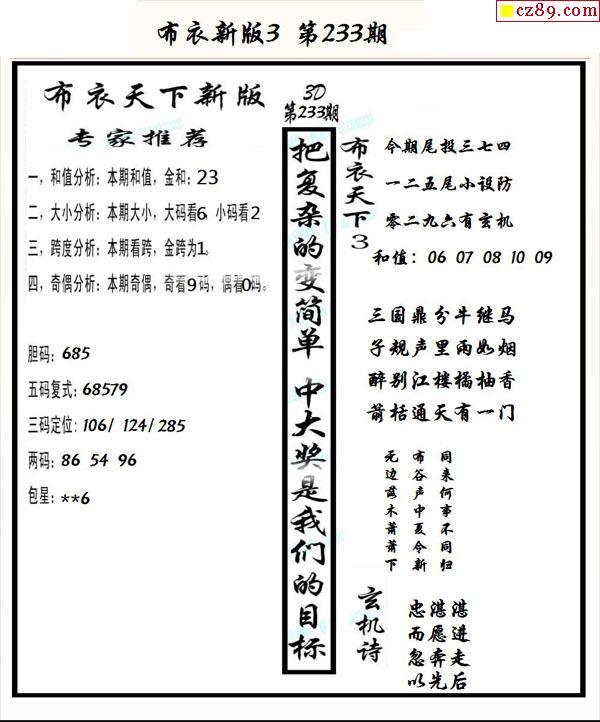 cz89.com
布衣新版3 第233期
布衣天下新版
专家推荐
一，和值分析：本期和值，金和：23
二，大小分析：本期大小，大码看6，小码看2
三，跨度分析：本期看跨，金跨为1。
四，奇偶分析：本期奇偶，奇看9码，偶看0码。
胆码：685
五码复式：68579
三码定位：106/ 124/285
两码：86 54 96
包星：**6
3D
第233期
把复杂的变简单 中大奖是我们的目标
布衣天下3
今期尾投三七四
一二五尾小设防
零二九六有玄机
和值：06 07 08 10 09
三国鼎分牛继马
子规声里雨如烟
醉别江楼橘柚香
箭括通天有一门
同来何事不同归
布谷声中夏令新
无边落木萧萧下
玄机诗
忠湛湛
而愿进
忽奔走
以先后